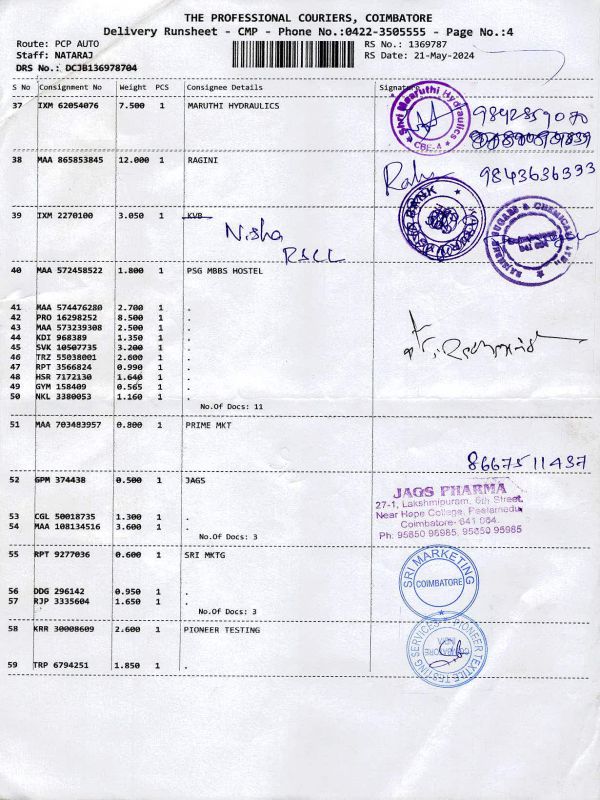 THE PROFESSIONAL COURIERS, COIMBATORE
Delivery Runsheet - CMP - Phone No.:0422-3505555 - Page No.:4
Route: PCP AUTO RS No.: 1369787
Staff: NATARAJ RS Date: 21-May-2024
DRS No.: DCJB136978704
S No Consignment No Weight PCS Consignee Details Signature
37 IXM 62054076 7.500 1 MARUTHI HYDRAULICS
Shri Maaruthi Hydraulics
CBE-4
9842859070
38 MAA 865853845 12.000 1 RAGINI
9843636333
39 IXM 2270100 3.050 1 KVB
Nisha
BANK
40 MAA 572458522 1.800 1 PSG MBBS HOSTEL
41 MAA 574476280 2.700 1 .
42 PRO 16298252 8.500 1 .
43 MAA 573239308 2.500 1 .
44 KDI 968389 1.350 1 .
45 SVK 10507735 3.200 1 .
46 TRZ 55038001 2.600 1 .
47 RPT 3566824 0.990 1 .
48 HSR 7172130 1.640 1 .
49 GYM 158409 0.565 1 .
50 NKL 3380053 1.160 1 .
No.Of Docs: 11
51 MAA 703483957 0.800 1 PRIME MKT
8667511437
52 GPM 374438 0.500 1 JAGS
JAGS PHARMA
27-1, Lakshmipuram, 6th Street,
Near Hope College, Peelamedu,
Coimbatore- 641 004.
Ph: 95850 96985, 95850 95985
53 CGL 50018735 1.300 1 .
54 MAA 108134516 3.600 1 .
No.Of Docs: 3
55 RPT 9277036 0.600 1 SRI MKTG
SRI MARKETING
COIMBATORE
56 DDG 296142 0.950 1 .
57 RJP 3335604 1.650 1 .
No.Of Docs: 3
58 KRR 30008609 2.600 1 PIONEER TESTING
PIONEER TEXTILE TESTING SERVICES
COIMBATORE
59 TRP 6794251 1.850 1 .